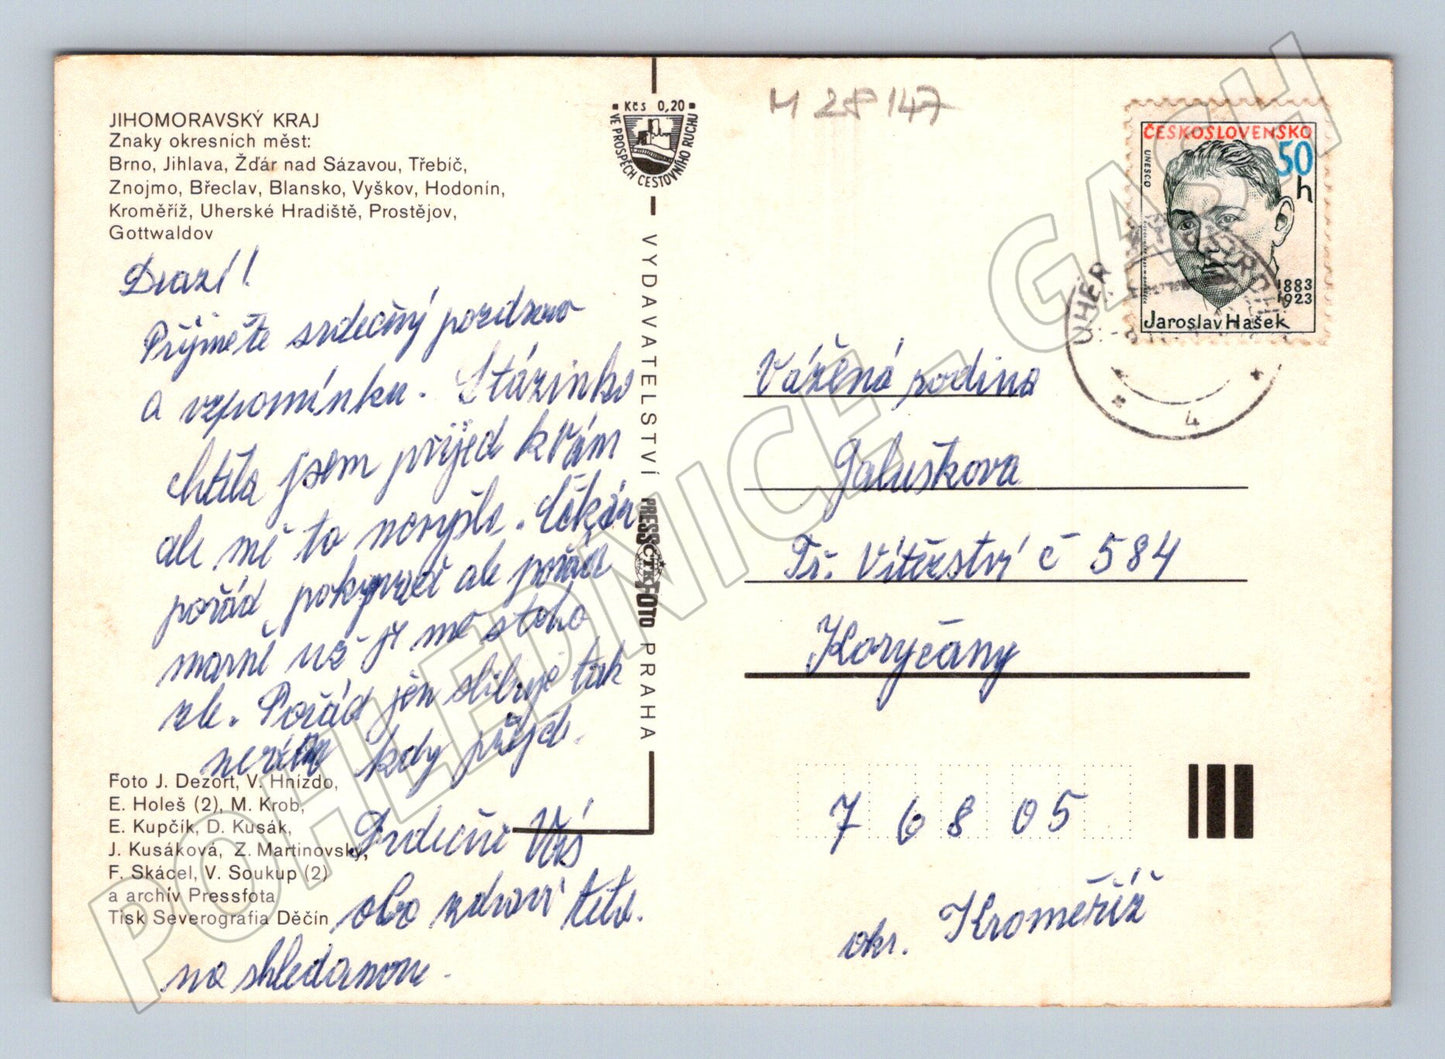 JIHOMORAVSKÝ KRAJ
Znaky okresních měst:
Brno, Jihlava, Žďár nad Sázavou, Třebíč,
Znojmo, Břeclav, Blansko, Vyškov, Hodonín,
Kroměříž, Uherské Hradiště, Prostějov,
Gottwaldov
Drazí!
Přijměte srdečný pozdrav
a vzpomínku. Stázinko
chtěla jsem přijed k Vám
ale mě to nevyšlo. Lékař
pořád pokyvuvač ale pořád
marně už je mě stoho
zle. Pořád jen slibuje tak
nevím kdy přijde.
Srdečně Vás
oba zdraví teta.
na shledanou.
Foto J. Dezort, V. Hnízdo,
E. Holeš (2), M. Krob,
E. Kupčík, D. Kusák,
J. Kusáková, Z. Martinovský,
F. Skácel, V. Soukup (2)
a archív Pressfota
Tisk Severografia Děčín
Kčs 0,20
VE PROSPĚCH CESTOVNÍHO RUCHU
VYDAVATELSTVÍ PRESSFOTO PRAHA
ČTK
M 28147
ČESKOSLOVENSKO
50 h
UNESCO
1883
1923
Jaroslav Hašek
UHER
4
Vážená rodina
Galuškova
Tř. Vítězství č 584
Koryčany
7 6 8 05
okr. Kroměříž
POHLEDNICE - GACH